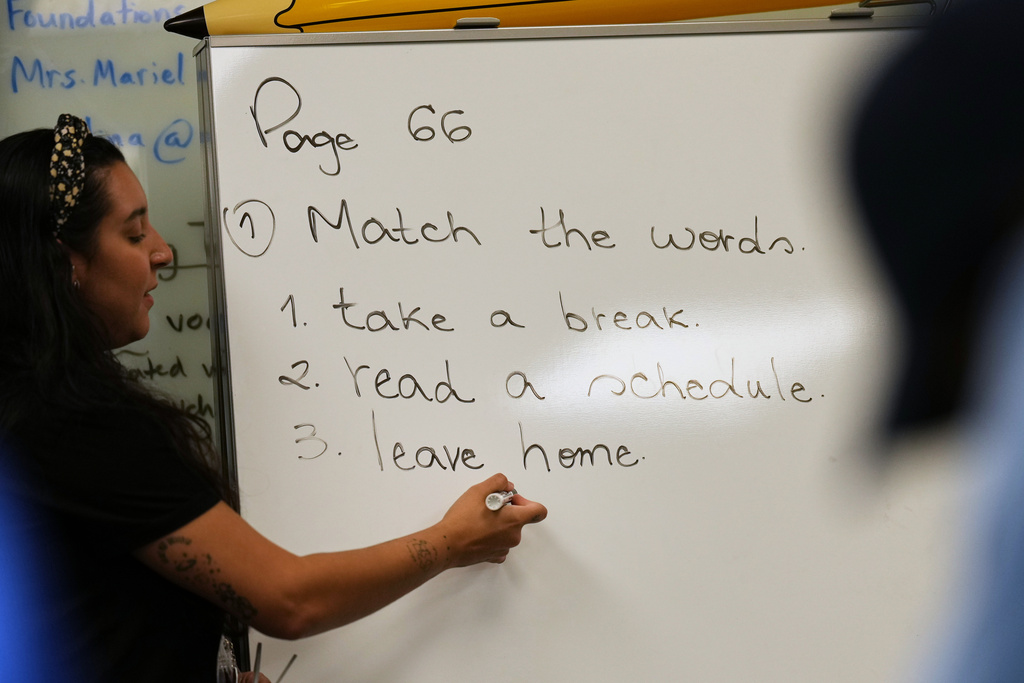 Foundations
Mrs. Mariel
@
Page 66
① Match the words.
1. take a break.
2. read a schedule.
3. leave home.